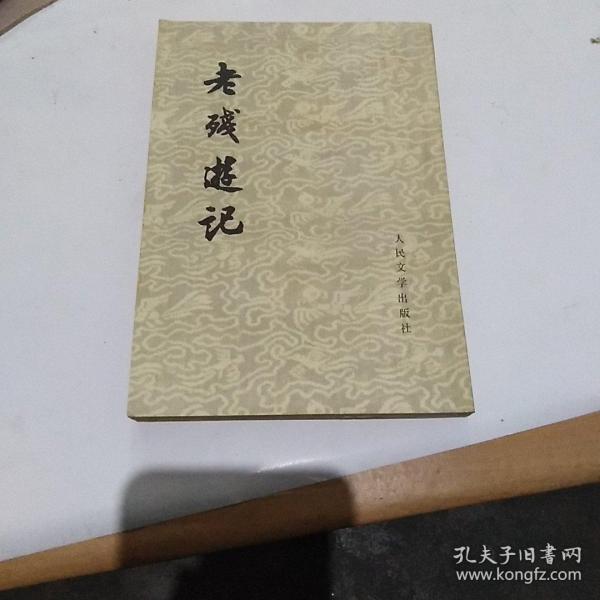 老殘遊记
人民文学出版社
孔夫子旧書网
www.kongfz.com